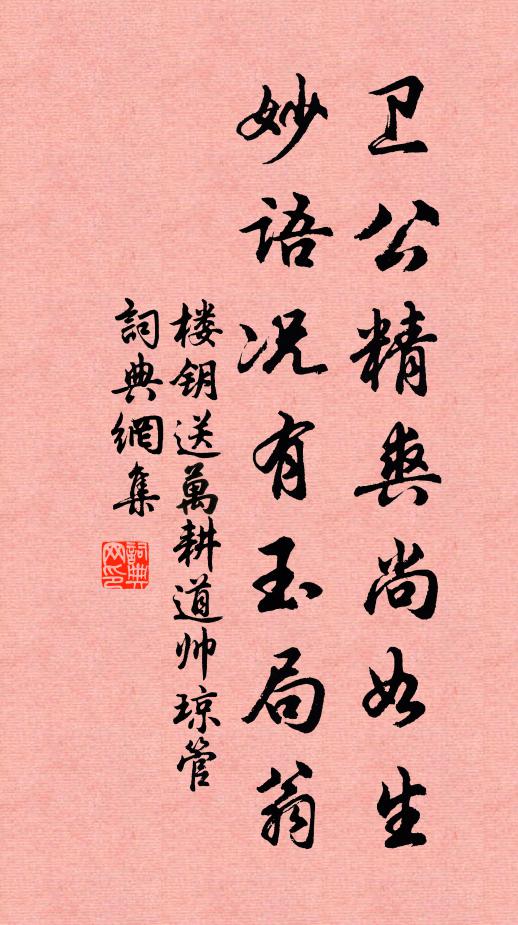 卫公精爽尚如生
妙语况有玉局翁
楼钥送萬耕道帅琼管
词典網集
词典网印